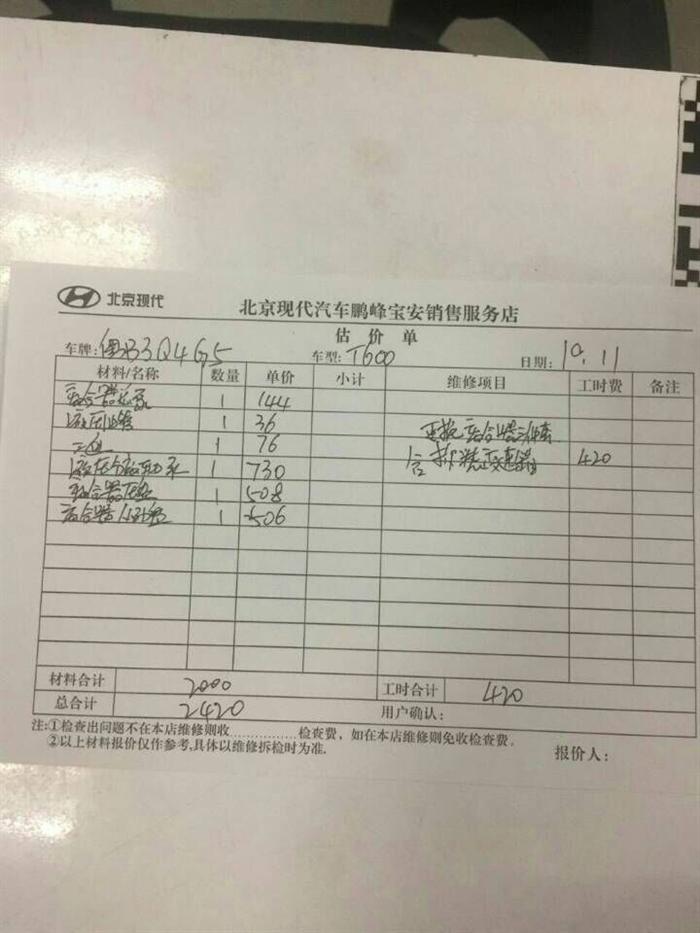 北京现代 北京现代汽车鹏峰宝安销售服务店
估价单
车牌: B3Q4G5 车型: T600 日期: 10.11
材料/名称 数量 单价 小计 维修项目 工时费 备注
离合器总泵 1 144
液压油管 1 36 更换离合器三件套
1 76 含拆装变速器 420
液压分离轴承 1 730
离合器压盘 1 508
离合器片 1 506
材料合计 2000 工时合计 420
总合计 2420 用户确认:
注:①检查出问题不在本店维修则收..................检查费，如在本店维修则免收检查费。
②以上材料报价仅作参考,具体以维修拆检时为准. 报价人: